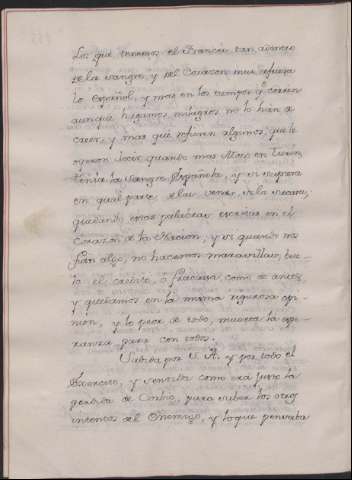 Los que tenemos el Francés tan adentro
de la sangre, y del Corazon muy afuera
lo Español, y mas en los tiempos q. corren
aunque hagamos milagros no lo han de
creer, y mas que refieren algunos, que le
oyeron decir quando mas Mozo en Turin
tenia la sangre Española, y si supiera
en qual parte de las venas, se la sacara,
quedando estas palabras escritas en el
Corazon de la Nacion, y si quando nos
fian algo, no hacemos maravillas, todo
el credito, o fracasa como de antes,
y quedamos en la misma rigurosa opi-
nion, y lo peor de todo, muerta la espe-
ranza para con todos.
Sabida por V. A. y por todo el
Exercito, y sentida como era justo la
perdida de , para saber los otros
intentos del Enemigo, y lo que pensaba